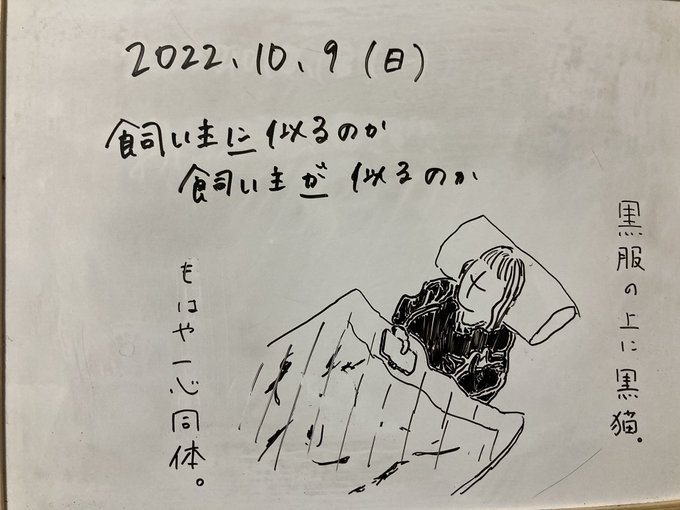 2022.10.9(日)
飼い主に似るのか
飼い主が似るのか
黒服の上に黒猫。
もはや一心同体。